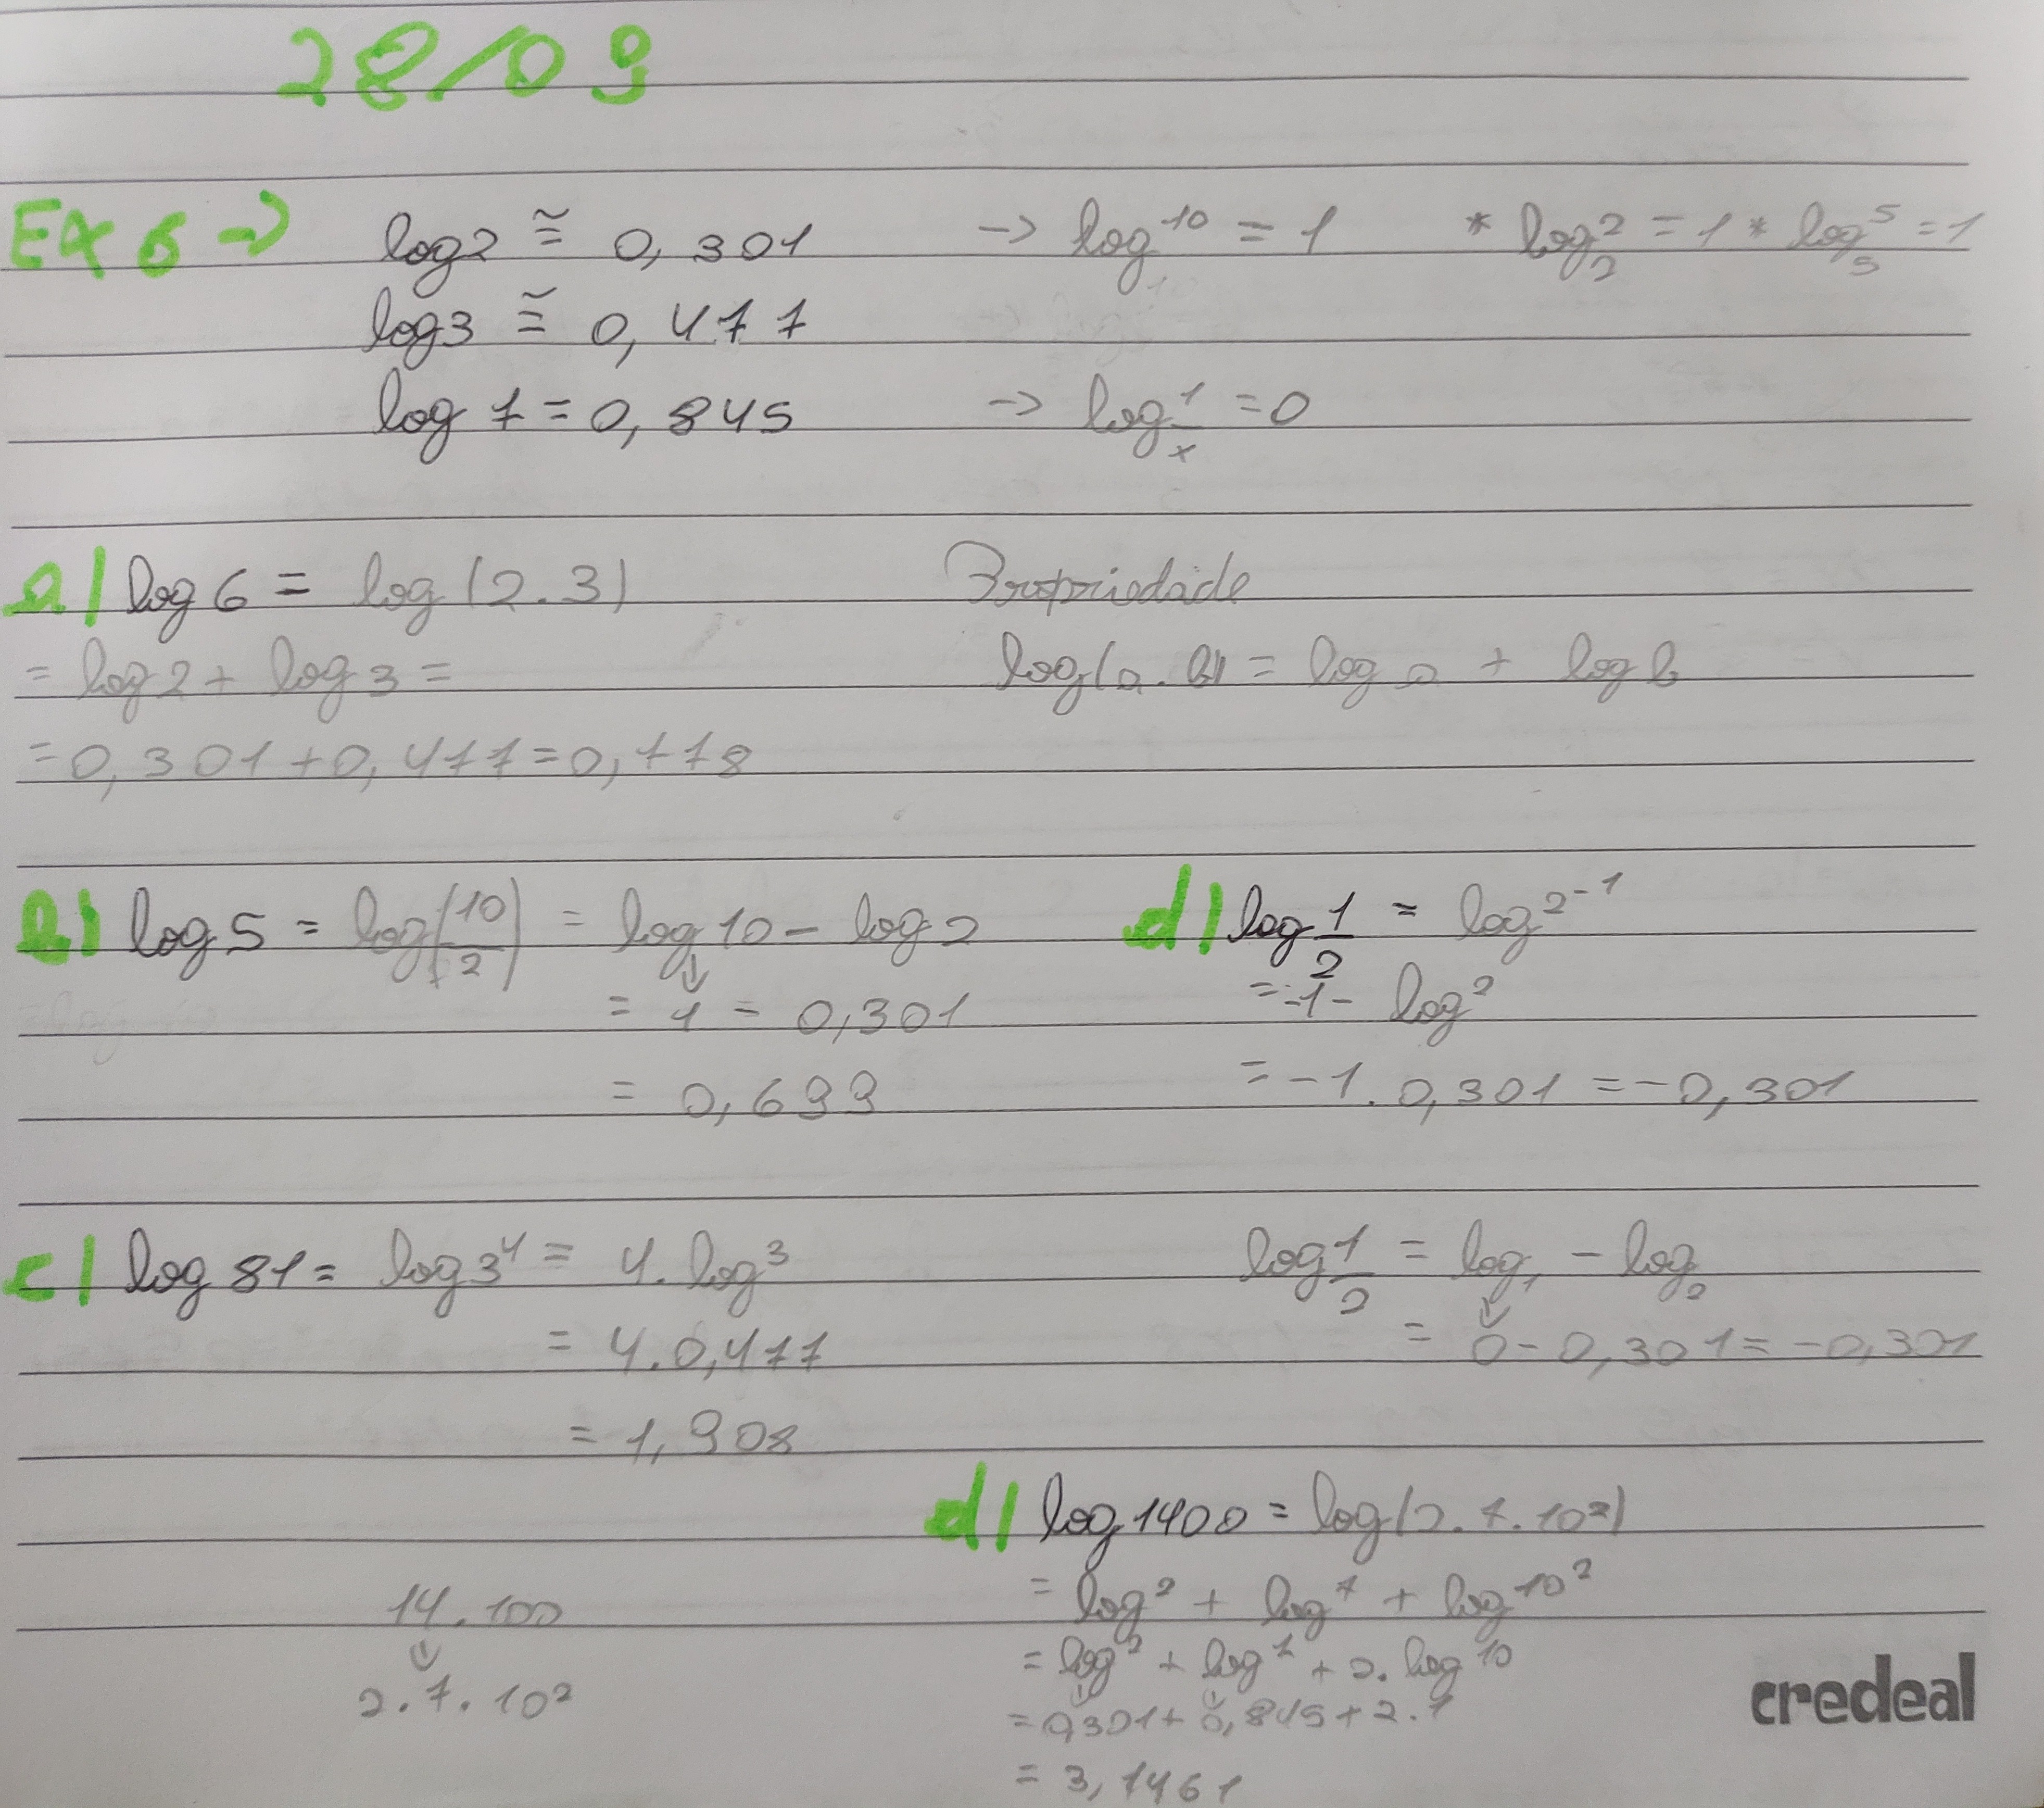 28/09
Ex 6 → log2 ≅ 0,301 → log 10 = 1 * log₂ 2 = 1 * log₅ 5 = 1
log3 ≅ 0,477
log 7 = 0,845 → logₓ 1 = 0
a) log 6 = log (2.3) Propriedade
= log 2 + log 3 = log(a.b) = log a + log b
= 0,301 + 0,477 = 0,778
b) log 5 = log(10/2) = log 10 - log 2
= 1 - 0,301
= 0,699
d) log 1/2 = log 2⁻¹
= -1 - log 2
= -1 . 0,301 = -0,301
c) log 81 = log 3⁴ = 4. log 3
= 4.0,477
= 1,908
log 1/2 = log 1 - log 2
= 0 - 0,301 = -0,301
d) log 1400 = log(2.7.10²)
= log 2 + log 7 + log 10²
= log 2 + log 7 + 2. log 10
= 0,301 + 0,845 + 2.1
= 3,1461
14.100
2.7.10²
credeal